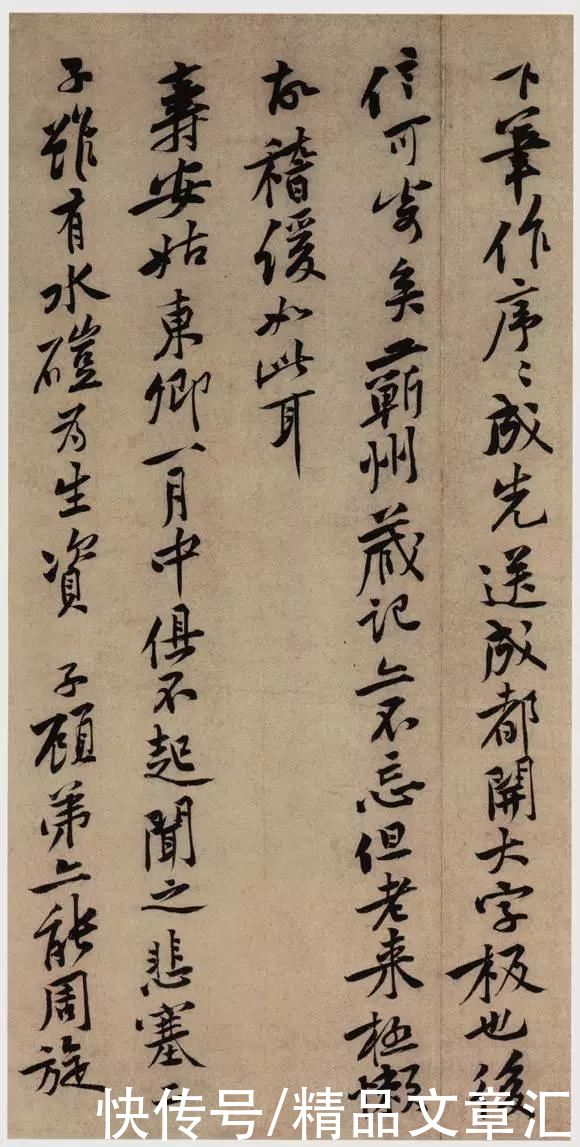 下筆作序〻成先送成都開大字板也後
信可寄矣蘄州藏記亦不忘但老来極懶
故稽緩如此耳
壽安姑東卿一月中俱不起聞之悲塞二
子雖有水磑為生資 子顧弟亦能周旋
快传号/精品文章汇